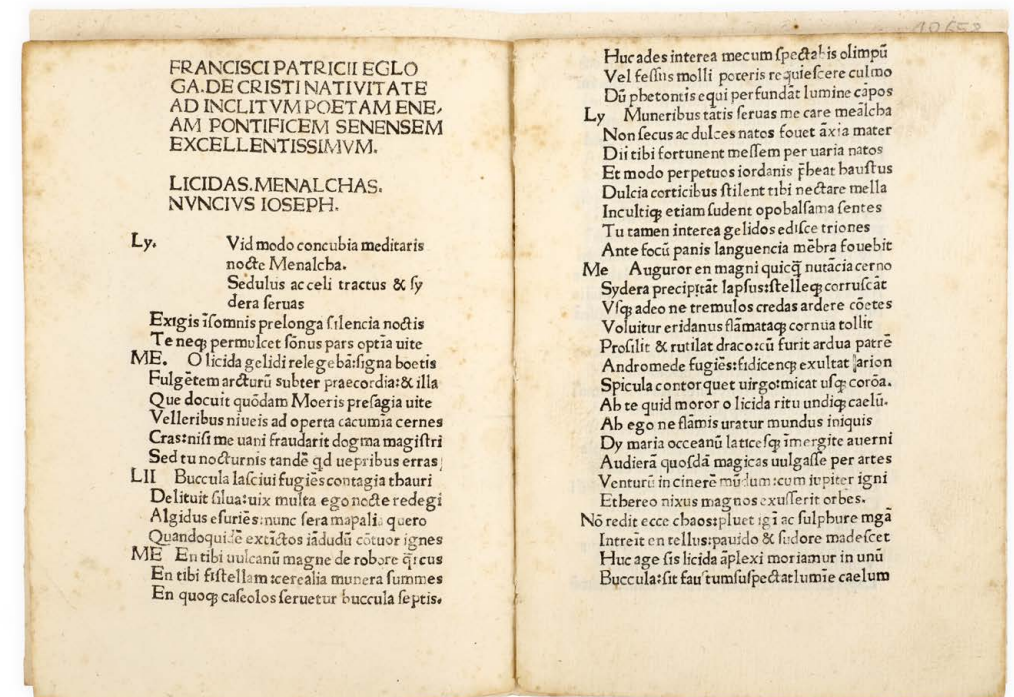 FRANCISCI PATRICII EGLO
GA.DE CRISTI NATIVITATE
AD INCLITVM POETAM ENE,
AM PONTIFICEM SENENSEM
EXCELLENTISSIMVM.
LICIDAS.MENALCHAS.
NVNCIVS IOSEPH.
Ly. Vid modo concubia meditaris
nocte Menalcha.
Sedulus ac celi tractus & sy
dera seruas
Exigis īsomnis prelonga silencia noctis
Te neqꝫ permulcet sōnus pars optīa uite
ME. O licida gelidi relegebā:signa boetis
Fulgētem arcturū subter praecordia:& illa
Que docuit quōdam Moeris presagia uite
Velleribus niueis ad operta cacumīa cernes
Cras:nisi me uani fraudarit dogma magistri
Sed tu nocturnis tandē qd uepribus erras
LII Buccula lasciui fugiēs contagia thauri
Delituit silua:uix multa ego nocte redegi
Algidus esuriēs:nunc sera mapalia quero
Quandoquidē extīctos iādudū cōtuor ignes
ME En tibi uulcanū magne de robore q̄rcus
En tibi fistellam:cerealia munera summes
En quoqꝫ caseolos seruetur buccula septis.
Huc ades interea mecum spectabis olimpū
Vel fessus molli poteris requiescere culmo
Dū phetontis equi perfundāt lumine cāpos
Ly Muneribus tātis seruas me care meālcha
Non secus ac dulces natos fouet āxia mater
Dii tibi fortunent messem per uaria natos
Et modo perpetuos iordanis p̄beat haustus
Dulcia corticibus stilent tibi nectare mella
Incultiqꝫ etiam sudent opobalsama sentes
Tu tamen interea gelidos edisce triones
Ante focū panis languencia mēbra fouebit
Me Auguror en magni quicq̄ nutācia cerno
Sydera precipitāt lapsus:stelleqꝫ corruscāt
Vsqꝫ adeo ne tremulos credas ardere cōetes
Voluitur eridanus flāmataqꝫ cornua tollit
Prosilit & rutilat draco:cū furit ardua patrē
Andromede fugiēs:fidicenqꝫ exultat arion
Spicula contorquet uirgo:micat usqꝫ corōa.
Ab te quid moror o licida ritu undiqꝫ caelū.
Ab ego ne flāmis uratur mundus iniquis
Dy maria occeanū laticesqꝫ īmergite auerni
Audierā quosdā magicas uulgasse per artes
Venturū in cinerē mūdum:cum iupiter igni
Ethereo nixus magnos exusserit orbes.
Nō redit ecce chaos:pluet igī ac sulphure mgā
Intreīt en tellus:pauido & sudore madescet
Huc age sis licida āplexi moriamur in unū
Buccula:sit faustum suspectat lumīe caelum